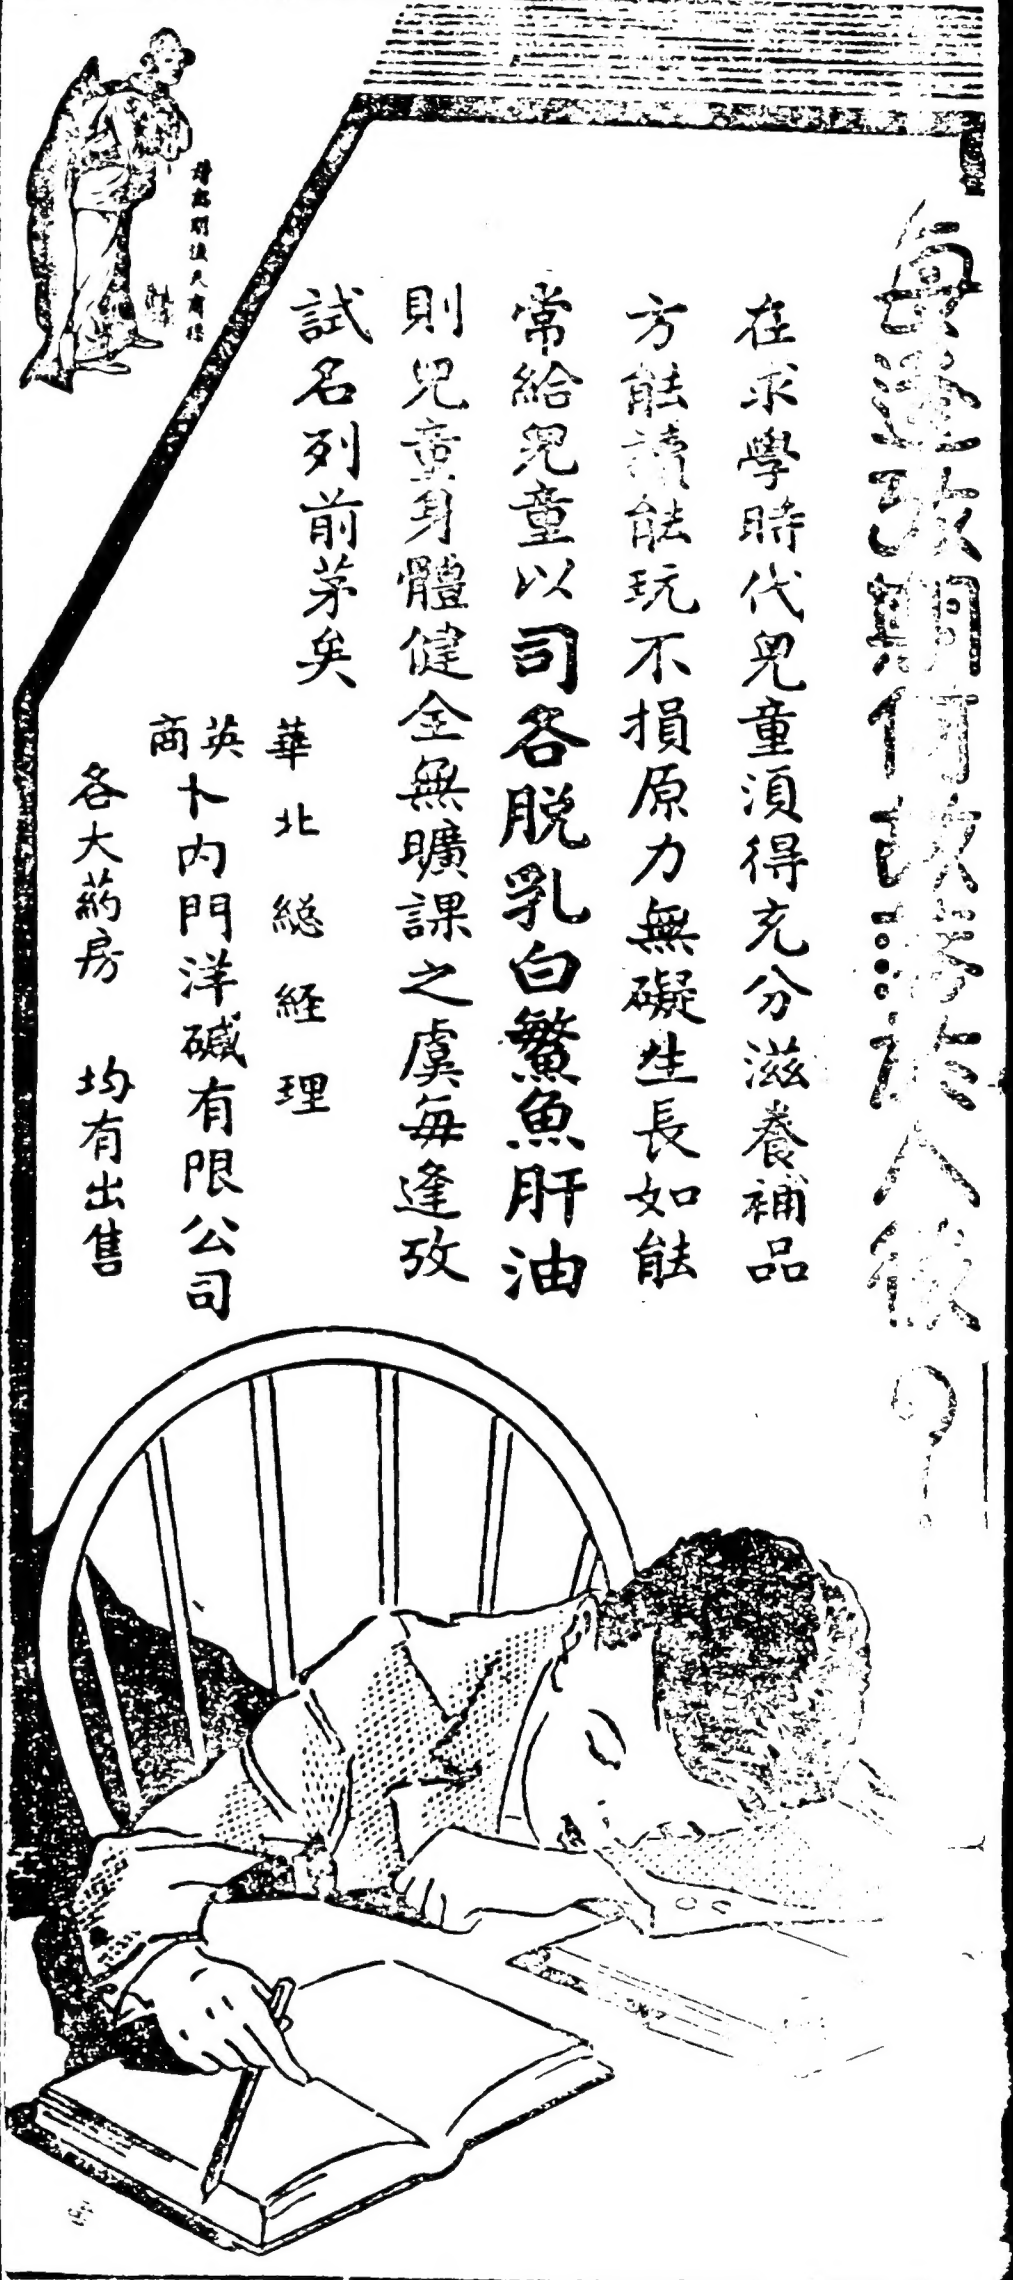 每逢攷期何故落於人後？
在求學時代兒童須得充分滋養補品
方能讀能玩不損原力無礙生長如能
常給兒童以司各脫乳白鰵魚肝油
則兒童身體健全無曠課之虞每逢攷
試名列前茅矣
華北総経理
英商卜内門洋碱有限公司
各大葯房 均有出售